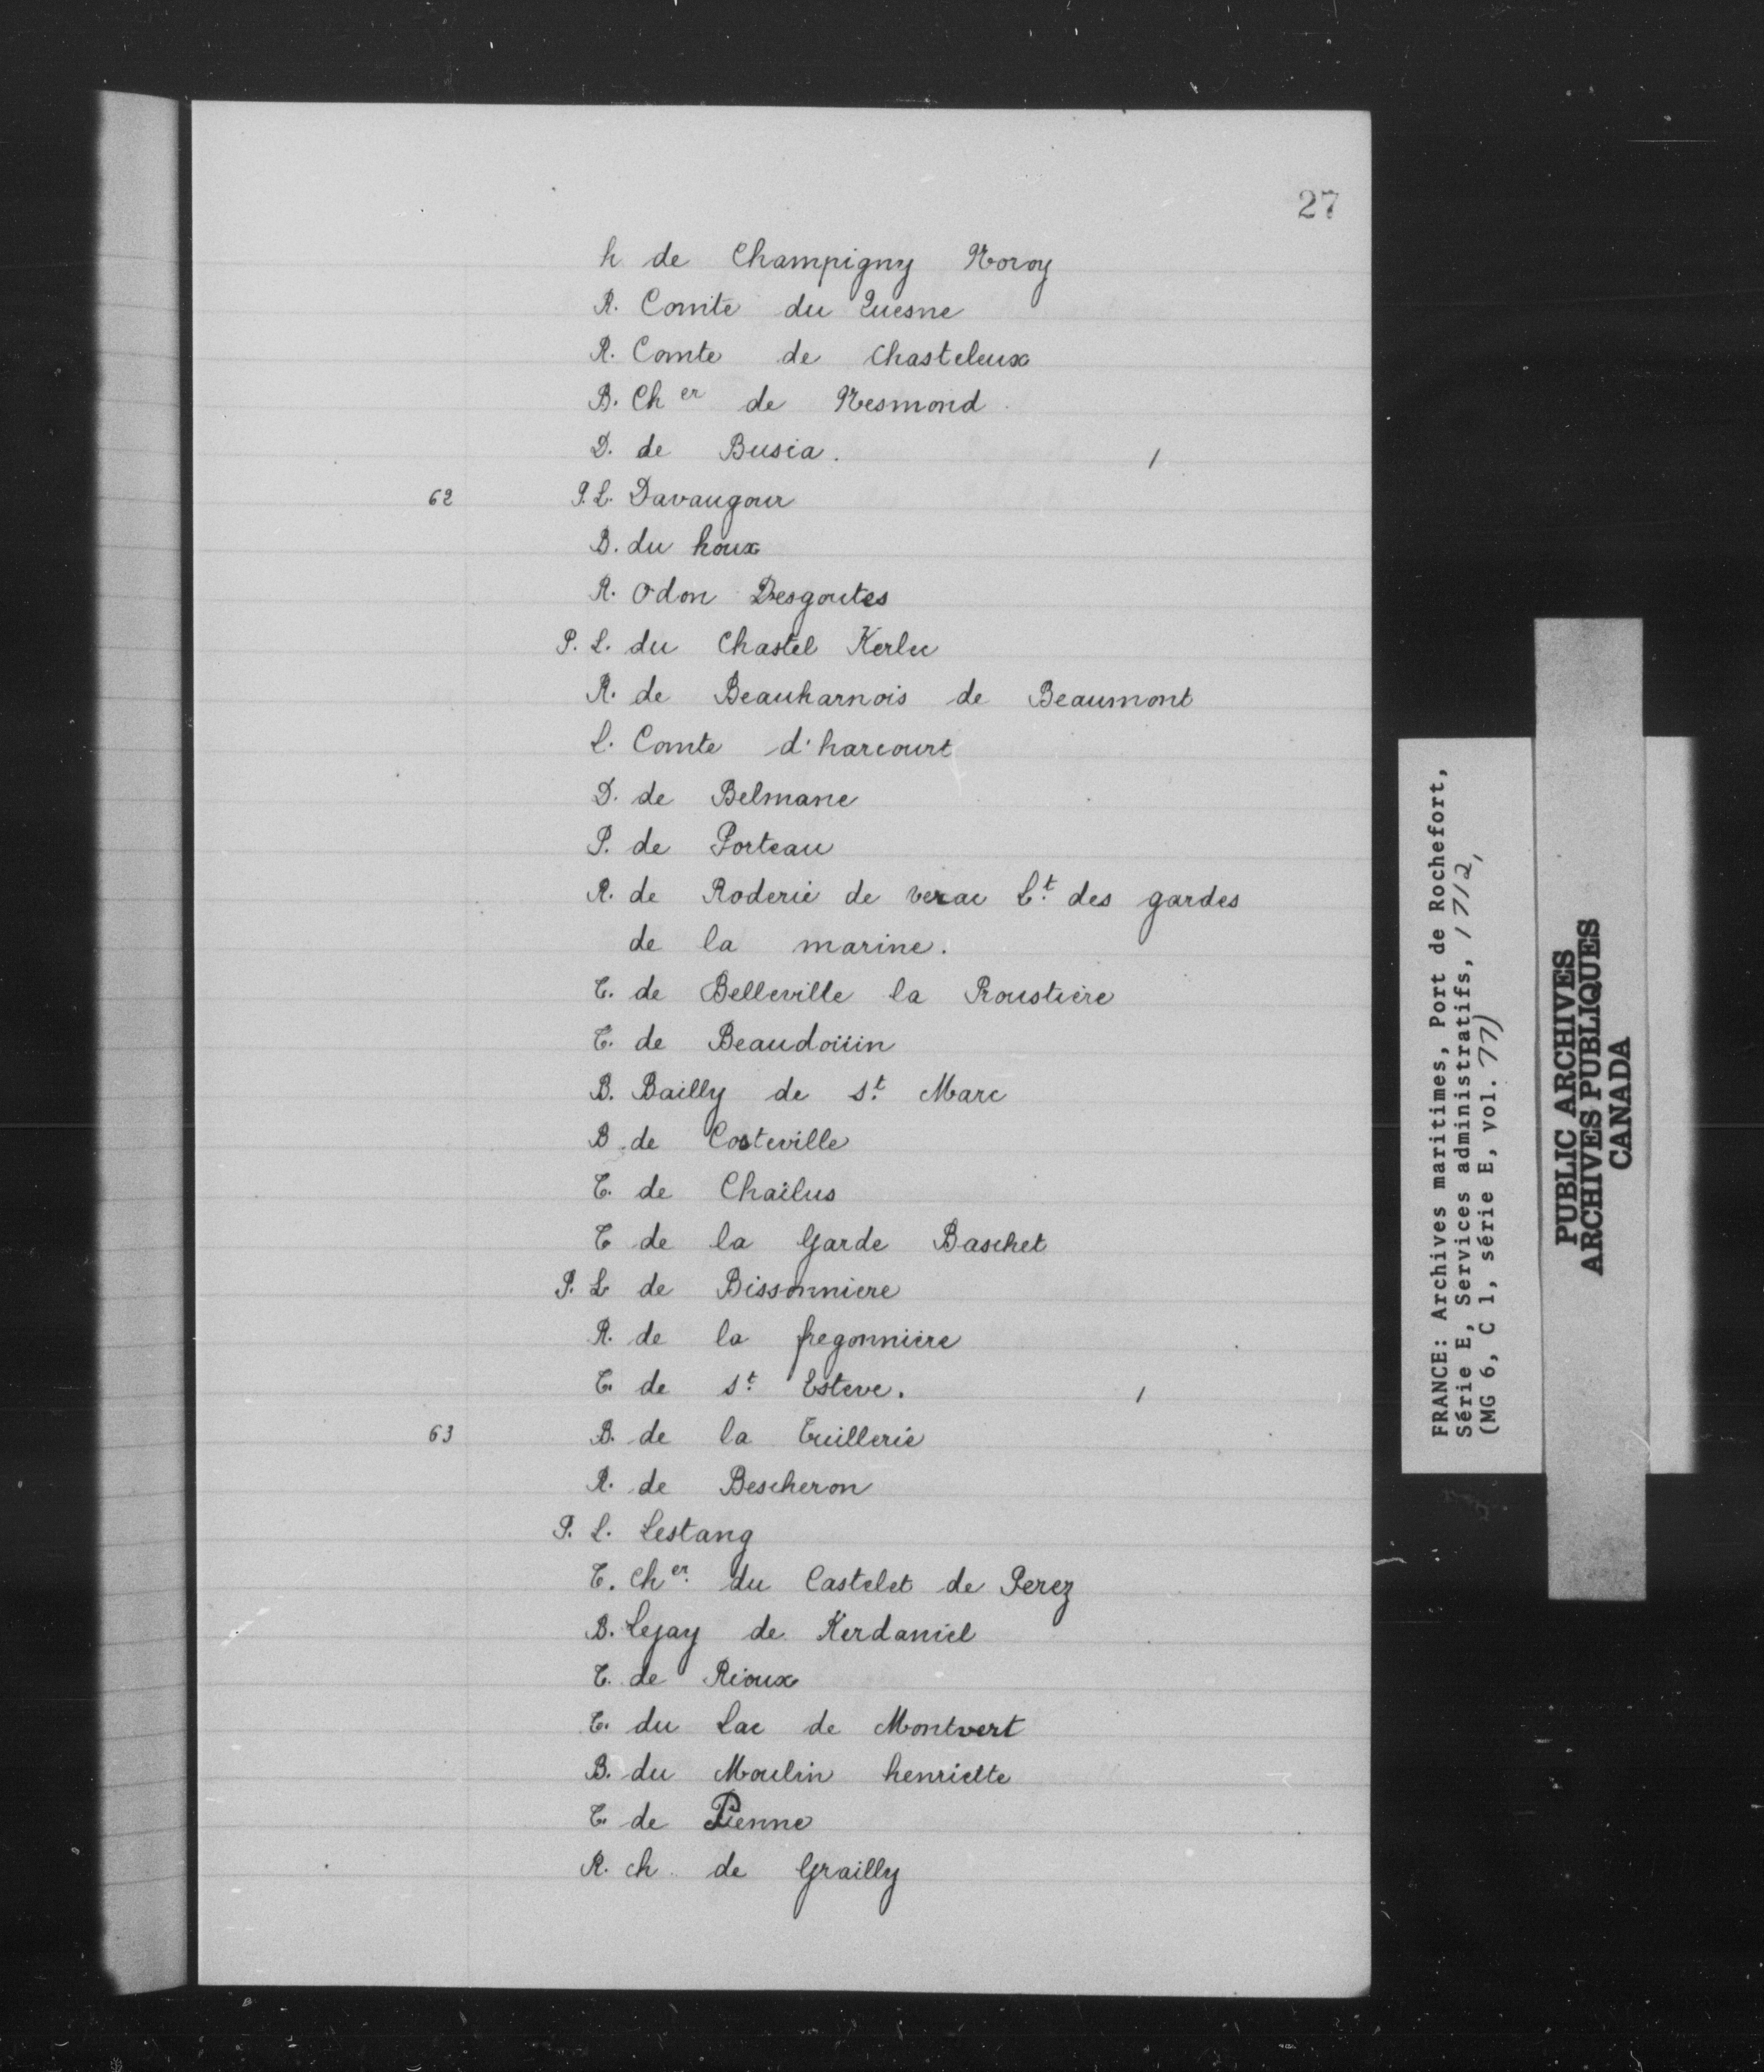 27
h de Champigny Noroy
R. Comte du Quesne
R. Comte de Chasteleux
B. Ch er de Nesmond
D. de Busca. /
62 P. L. Davaugour
B. du houx
R. Odon Desgoutes
P. L. du Chastel Kerlec
R. de Beauharnois de Beaumont
L. Comte d'harcourt
D. de Belmane
P. de Porteau
R. de Roderie de verac Lt. des gardes
de la marine.
T. de Belleville la Roustiere
T. de Beaudoüin
B. Bailly de st. Marc
B. de Costeville
T. de Chailus
T de la Garde Baschet
P. L de Bissonniere
R. de la fregonniere
T. de st. Esteve. /
63 B. de la Tuillerie
R. de Bescheron
P. L. Lestang
T. Cher. du Castelet de Perez
B. Lejay de Kerdaniel
T. de Rioux
T. du Lac de Montvert
B. du Moulin henriette
T. de Pienne
R. ch. de Grailly
FRANCE: Archives maritimes, Port de Rochefort,
Série E, Services administratifs, 1712,
(MG 6, C 1, série E, vol. 77)
PUBLIC ARCHIVES
ARCHIVES PUBLIQUES
CANADA